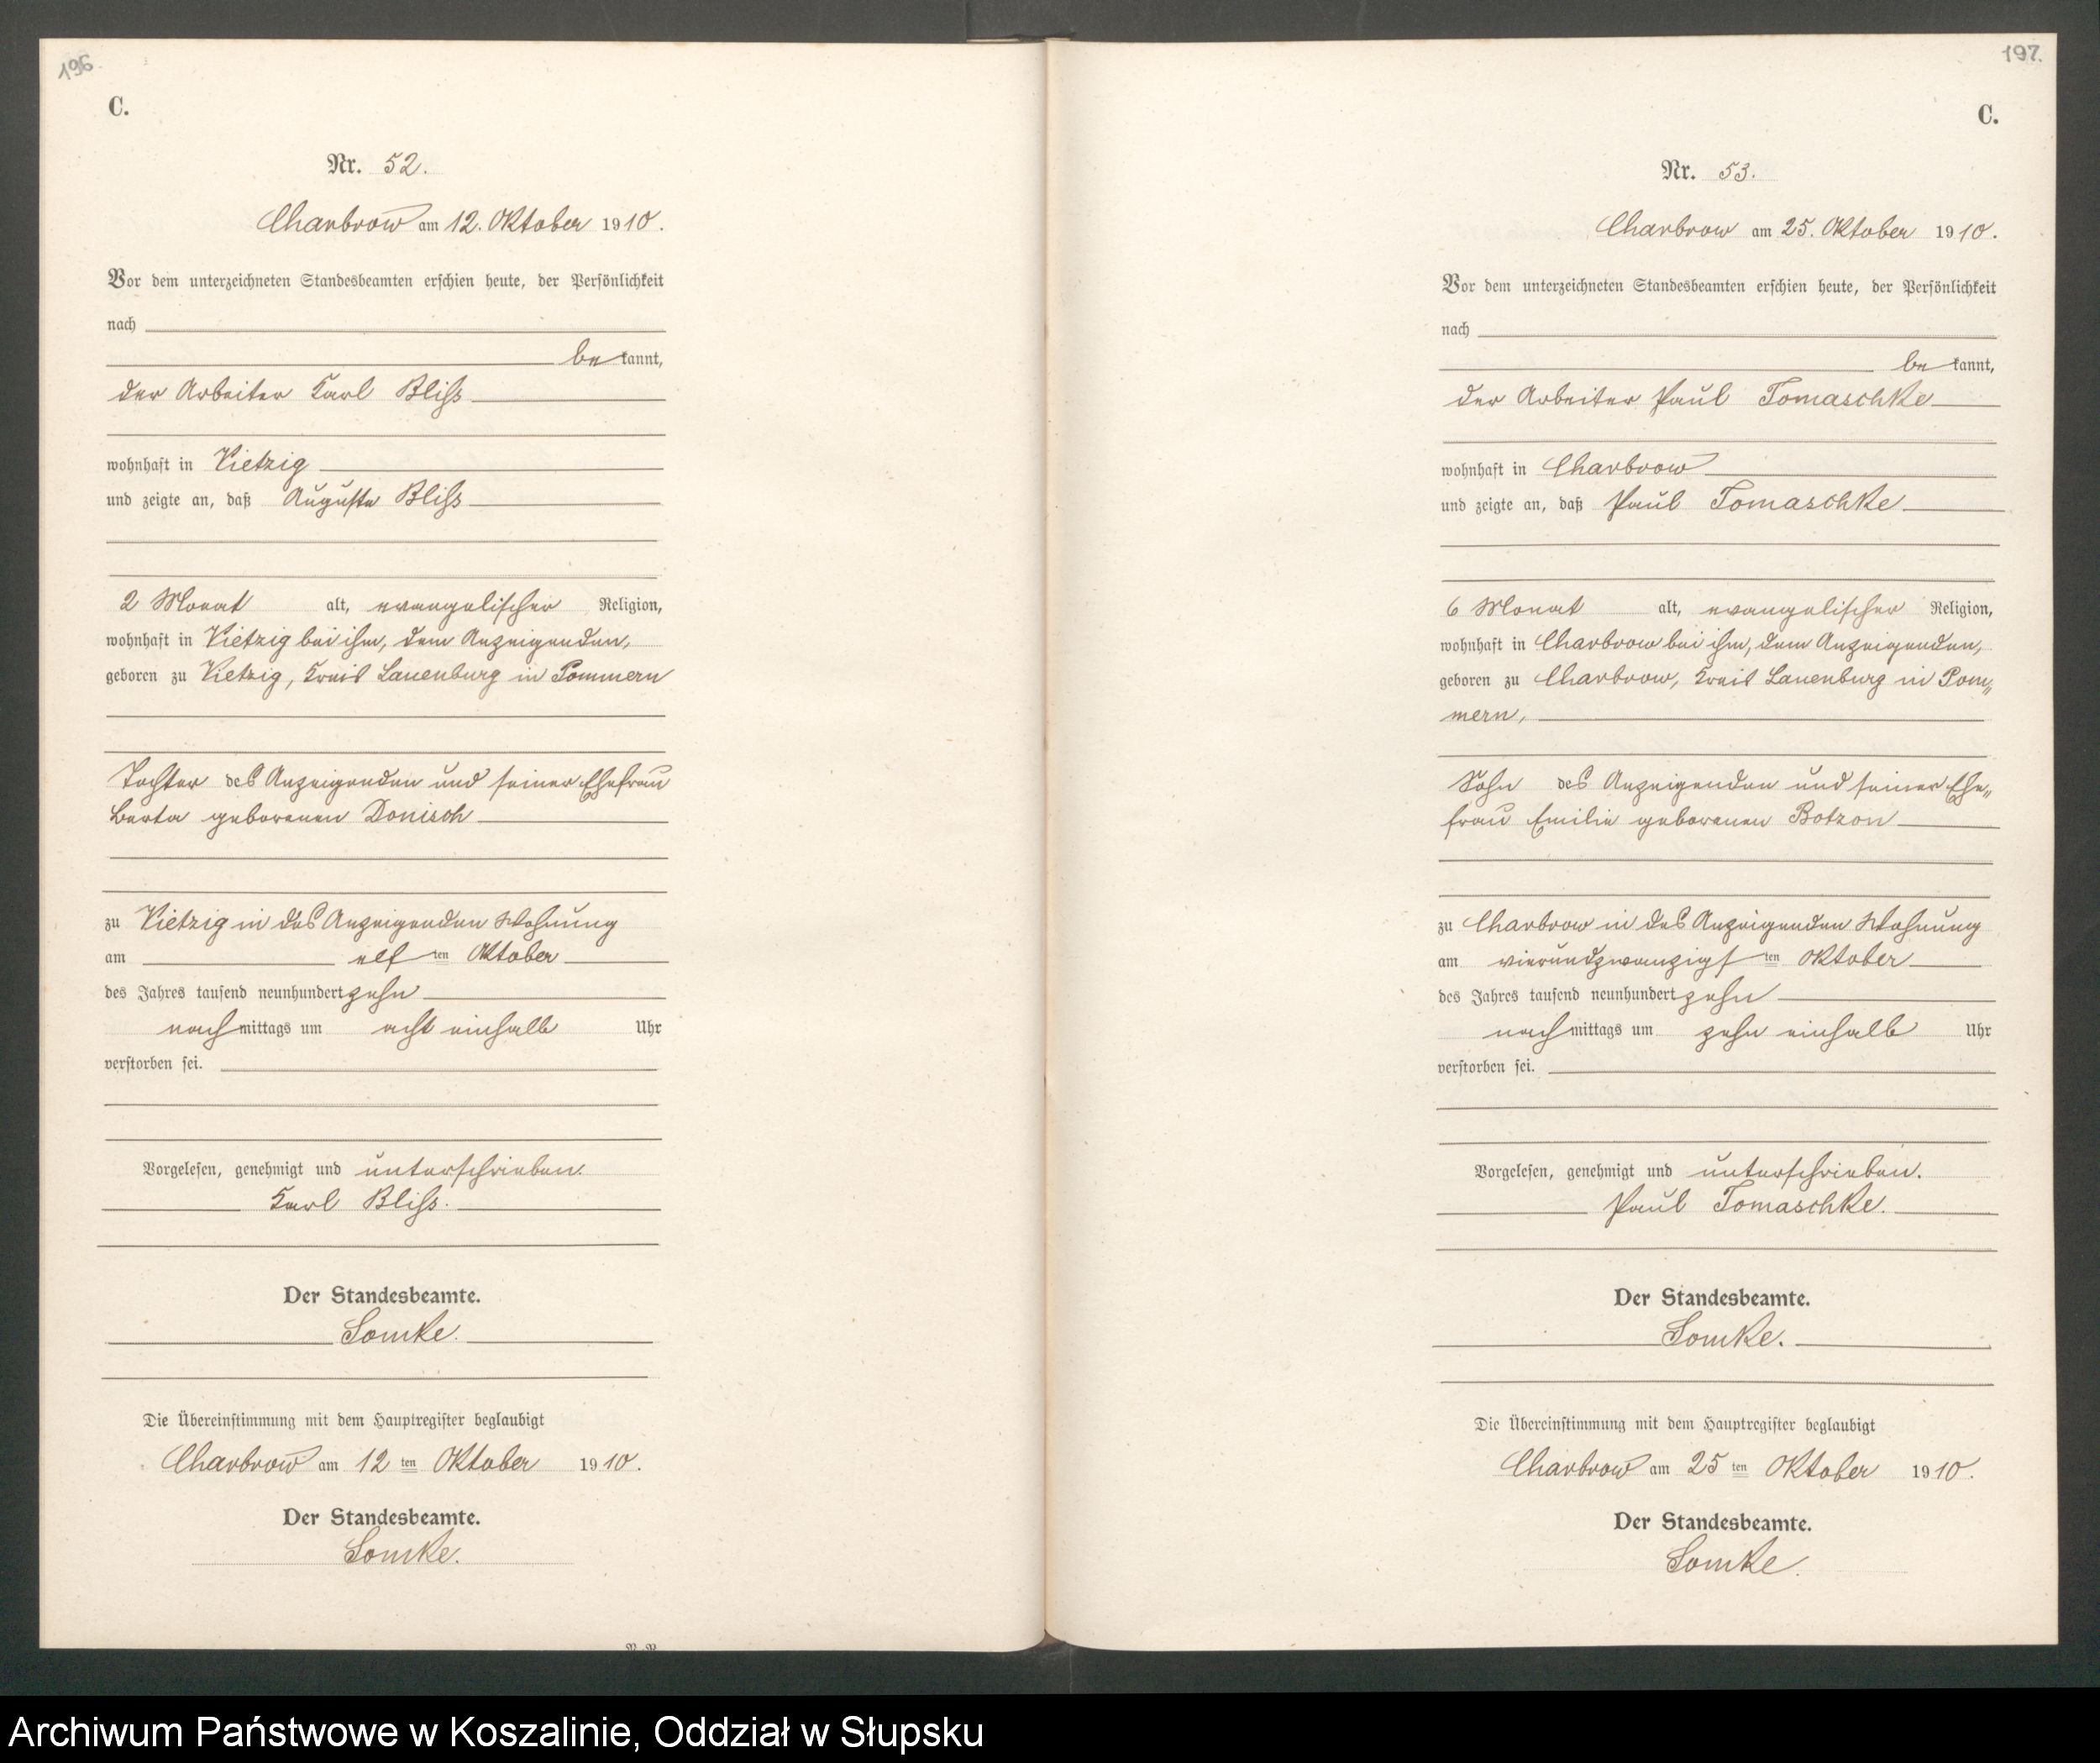 196
C.
Nr. 52.
Charbrow am 12. Oktober 1910.
Vor dem unterzeichneten Standesbeamten erschien heute, der Persönlichkeit
nach
bekannt,
der Arbeiter Karl Bliß
wohnhaft in Vietzig
und zeigte an, daß Auguste Bliß
2 Monat alt, evangelischer Religion,
wohnhaft in Vietzig bei ihm, dem Anzeigenden,
geboren zu Vietzig, Kreis Lauenburg in Pommern
Tochter des Anzeigenden und seiner Ehefrau
Berta geborenen Donisch
zu Vietzig in des Anzeigenden Wohnung
am elf ten Oktober
des Jahres tausend neunhundert zehn
nachmittags um acht einhalb Uhr
verstorben sei.
Vorgelesen, genehmigt und unterschrieben.
Karl Bliß.
Der Standesbeamte.
Somke.
Die Übereinstimmung mit dem Hauptregister beglaubigt
Charbrow am 12 ten Oktober 1910.
Der Standesbeamte.
Somke.
197.
C.
Nr. 53.
Charbrow am 25. Oktober 1910.
Vor dem unterzeichneten Standesbeamten erschien heute, der Persönlichkeit
nach
bekannt,
der Arbeiter Paul Tomaschke
wohnhaft in Charbrow
und zeigte an, daß Paul Tomaschke
6 Monat alt, evangelischer Religion,
wohnhaft in Charbrow bei ihm, dem Anzeigenden,
geboren zu Charbrow, Kreis Lauenburg in Pom„
mern,
Sohn des Anzeigenden und seiner Ehe„
frau Emilie geborenen Botzon
zu Charbrow in des Anzeigenden Wohnung
am vierundzwanzigs ten Oktober
des Jahres tausend neunhundert zehn
nachmittags um zehn einhalb Uhr
verstorben sei.
Vorgelesen, genehmigt und unterschrieben.
Paul Tomaschke.
Der Standesbeamte.
Somke.
Die Übereinstimmung mit dem Hauptregister beglaubigt
Charbrow am 25 ten Oktober 1910.
Der Standesbeamte.
Somke.
Archiwum Państwowe w Koszalinie, Oddział w Słupsku